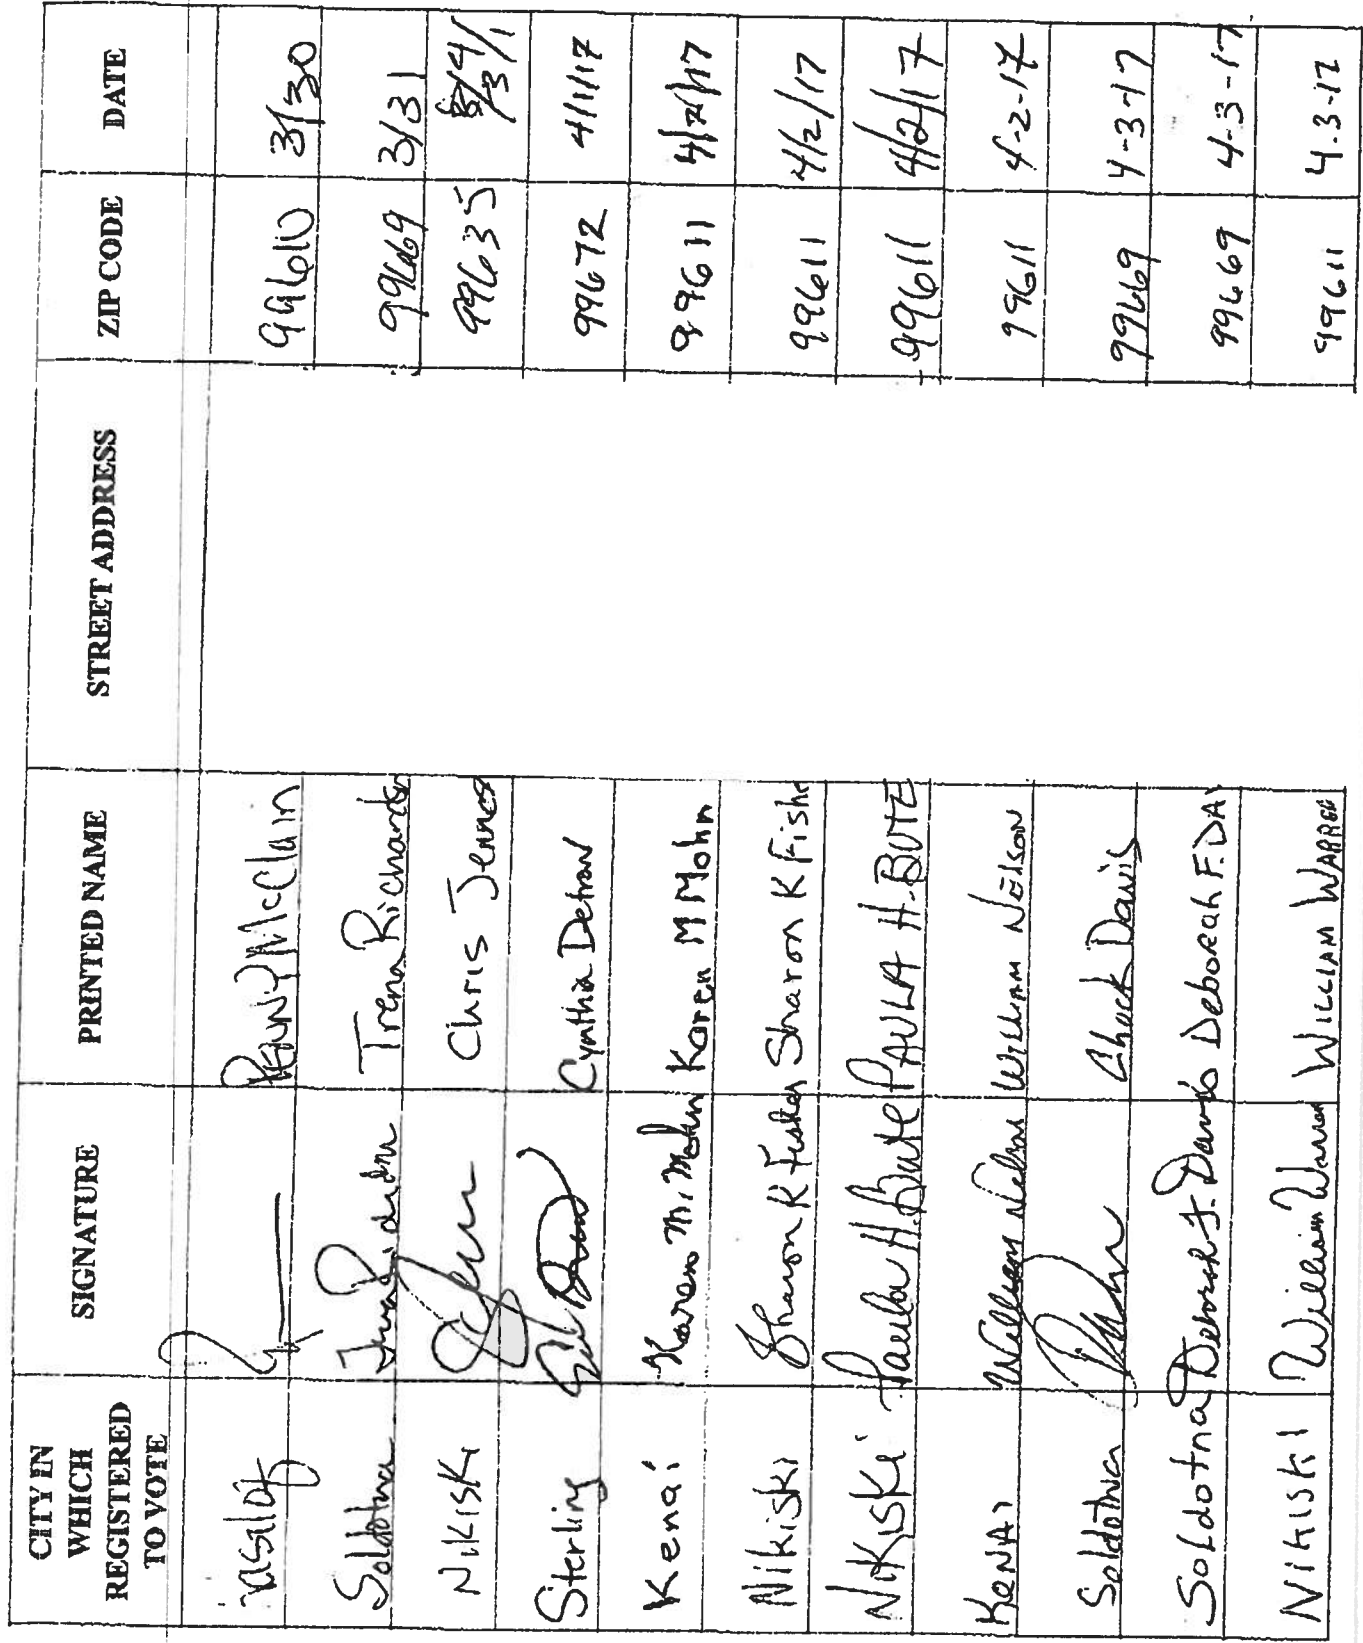 CITY IN WHICH REGISTERED TO VOTE SIGNATURE PRINTED NAME STREET ADDRESS ZIP CODE DATE
McClain 99610 3/30
Soldotna Trena Richards 99669 3/31
Nikiski Chris Jennes 99635
Sterling Cynthia Detrow 99672 4/1/17
Kenai Karen M. Mohn Karen M Mohn 99611 4/2/17
Nikiski Sharon K Fisher Sharon K Fishe 99611 4/2/17
NiKiSKi Paula H. Bute PAULA H. BUTE 99611 4/2/17
KENAI William Nelson William NELSON 99611 4-2-17
Soldotna Chuck Davis 99669 4-3-17
SoLdotna Deborah F. Davis Deborah F. DAV 99669 4-3-17
NIKISKI William Warren WILLIAM WARREN 99611 4-3-17